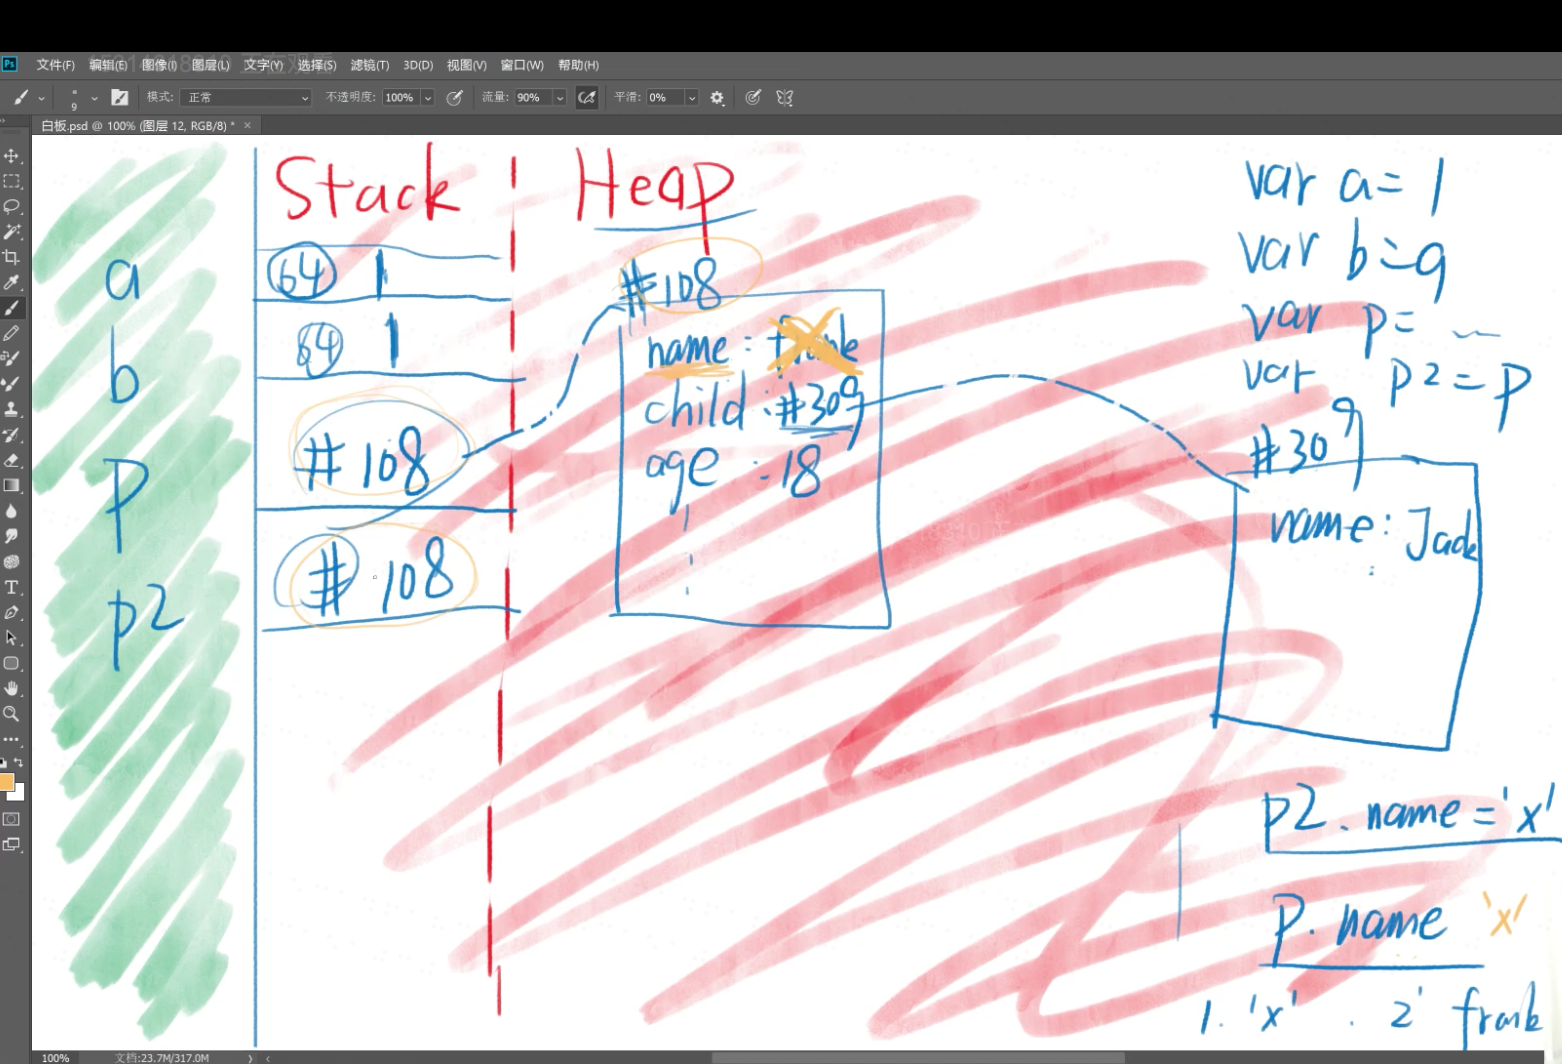 文件(F) 编辑(E) 图像(I) 图层(L) 文字(Y) 选择(S) 滤镜(T) 3D(D) 视图(V) 窗口(W) 帮助(H)
9 模式: 正常 不透明度: 100% 流量: 90% 平滑: 0%
白板.psd @ 100% (图层 12, RGB/8) * ×
Stack Heap
a 64 1
b 64 1
p #108
p2 #108
#108
name: frank
child: #309
age: 18
#309
name: Jack
var a= 1
var b=a
var p=
var p2=p
p2.name='x'
p.name 'x'
1. 'x' . 2' frank
100% 文档:23.7M/317.0M